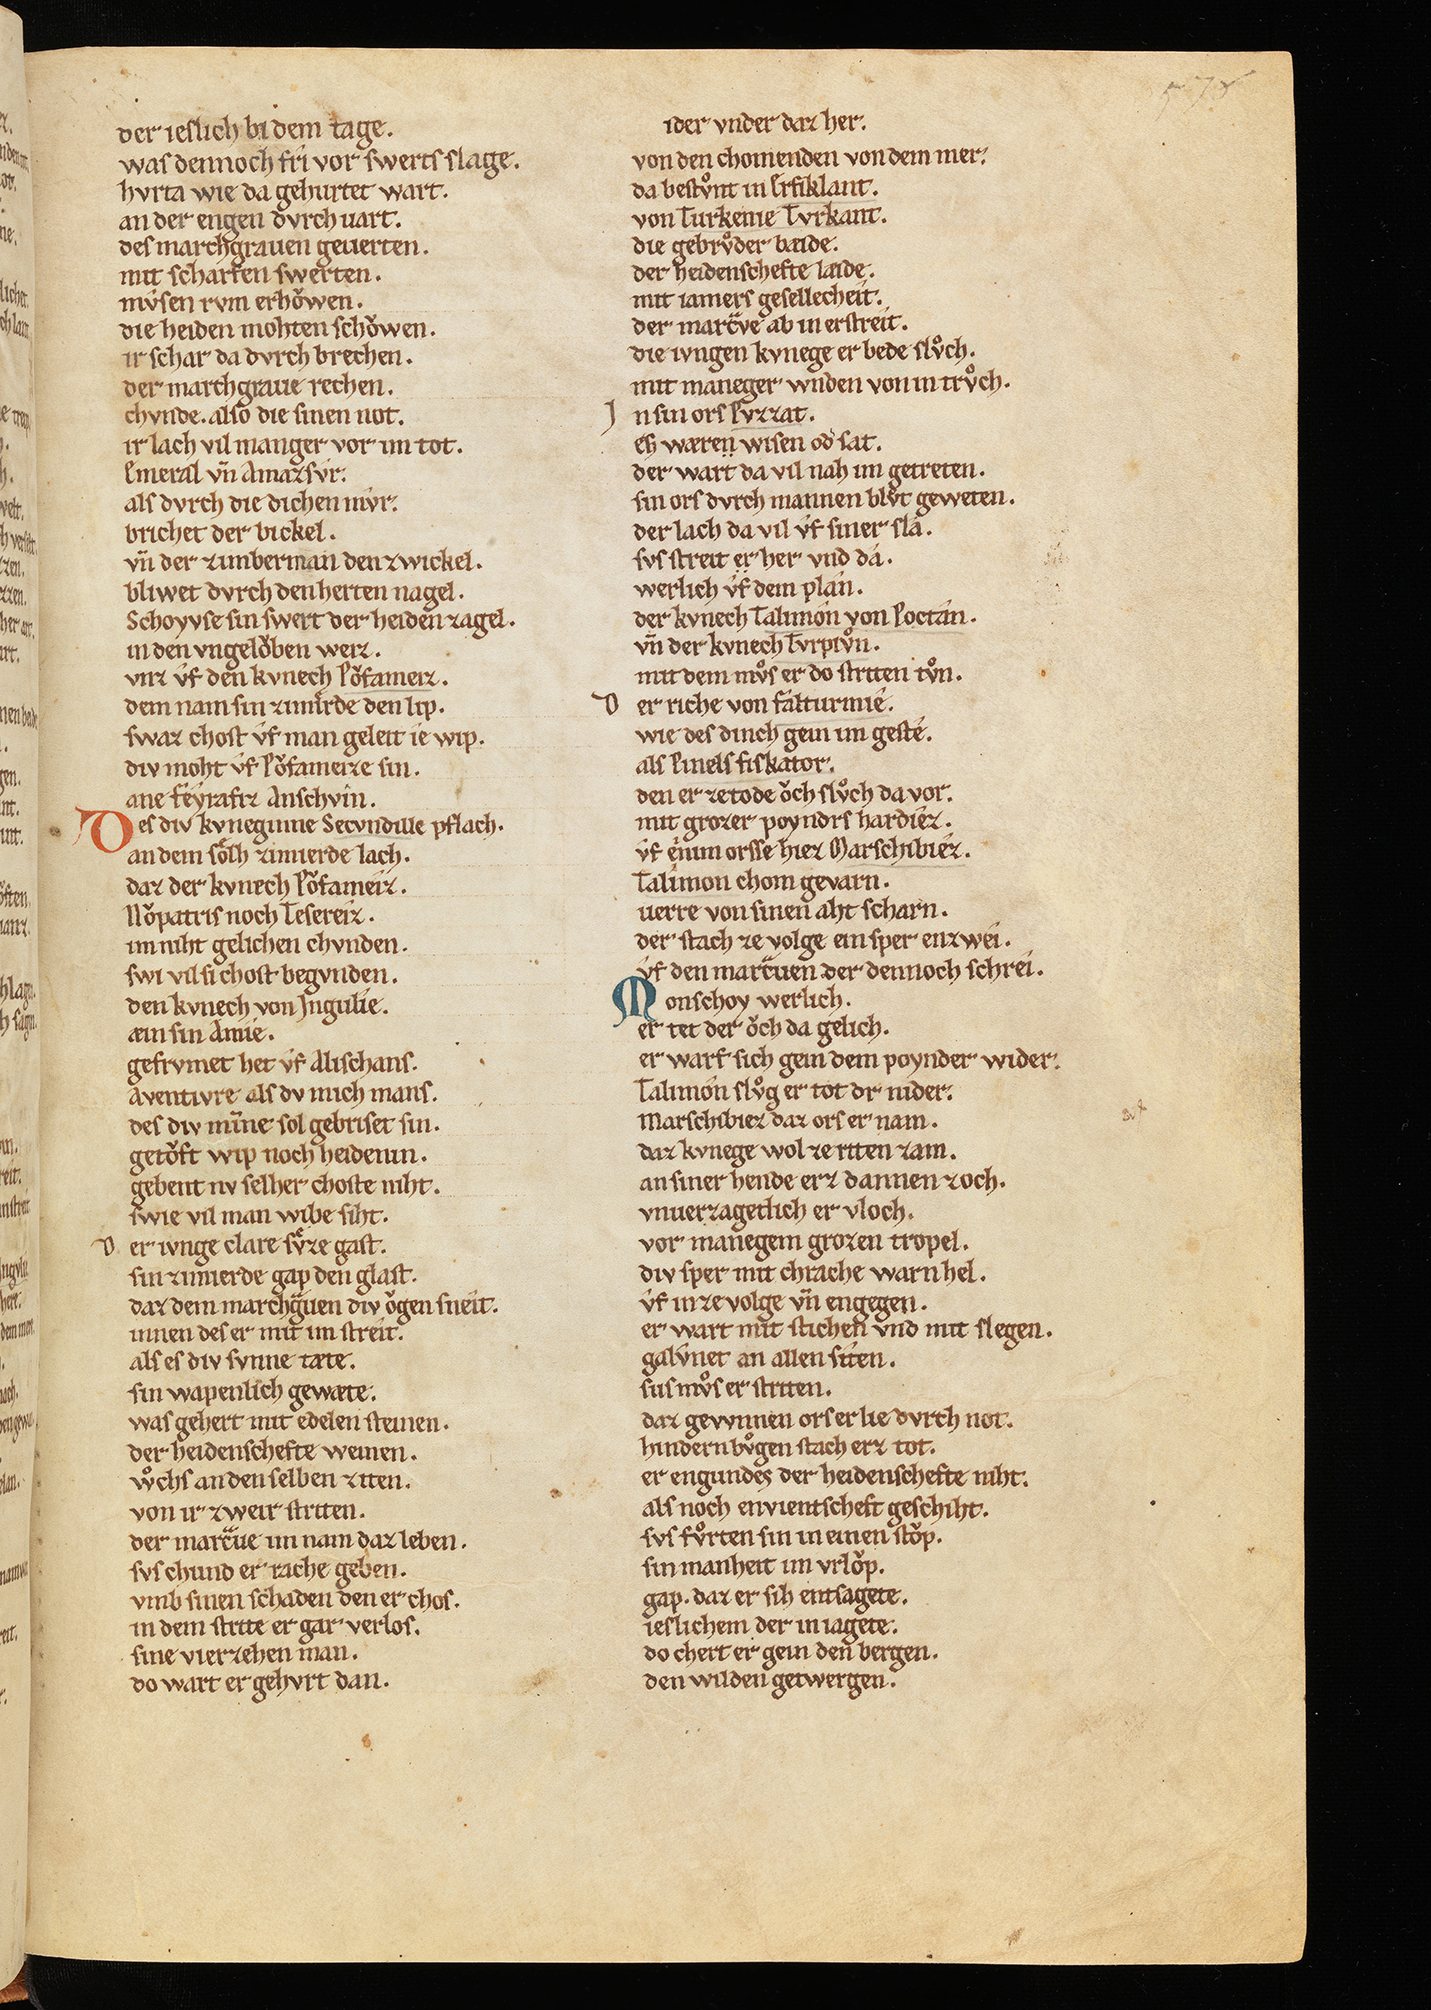 der ieslich bi dem tage.
was dennoch fri vor swerts slage.
hvrta wie da gehurtet wart.
an der engen dvrch uart.
des marchgrauen geuerten.
mit scharfen swerten.
mv̊sen rvm erhǒwen.
die heiden mohten schǒwen.
ir schar da dvrch brechen.
der marchgraue rechen.
chvnde. also die sinen not.
ir lach vil manger vor im tot.
Emeral vn̄ Amazsvr.
als dvrch die dichen mv̊r.
brichet der bickel.
vn̄ der zimberman den zwickel.
bliwet dvrch den herten nagel.
Schoyvse sin swert der heiden zagel.
in den vngelǒben weiz.
vnz v̊f den kvnech Pǒfameiz.
dem nam sin zimirde den lip.
swaz chost v̊f man geleit ie wip.
div moht v̊f Pǒfameize sin.
ane feyrafiz Anschvin.
Des div kvneginne Secvndille pflach.
an dem sǒlh zimierde lach.
daz der kvnech Pǒfameiz.
Nǒpatris noch Tesereiz.
im niht gelichen chvnden.
swi vil si chost begvnden.
den kvnech von Jngulie.
æin sin Amie.
gefrvmet het v̊f Alischans.
Aventivre als dv mich mans.
des div mīne sol gebriset sin.
getǒft wip noch heidenin.
gebent nv selher choste niht.
swie vil man wibe siht.
Der ivnge clare sv̊ze gast.
sin zimierde gap den glast.
daz dem marchg̈uen div ǒgen sneit.
innen des er mit im streit.
als es div svnne tæte.
sin wapenlich gewæte.
was gehert mit edelen steinen.
der heidenschefte weinen.
wͦchs an den selben ziten.
von ir zweir striten.
der marc̈ue im nam daz leben.
svs chund er rache geben.
vmb sinen schaden den er chos.
in dem strite er gar verlos.
sine vierzehen man.
do wart er gehvrt dan.
ider vnder daz her.
von den chomenden von dem mer.
da bestv̊nt in Erfiklant.
von Turkenie Tvrkant.
die gebrv̊der baide.
der heidenschefte laide.
mit iamers gesellecheit.
der marc̈ve ab in erstreit.
die ivngen kvnege er bede slv̊ch.
mit maneger wnden von in trv̊ch.
Jn sin ors Pvzzat.
eȥ wæren wisen od sat.
der wart da vil nah im getreten.
sin ors dvrch mannen blv̊t geweten.
der lach da vil v̊f siner sla.
svs streit er her vnd da.
werlich v̊f dem plan.
der kvnech Talimon von Poctan.
vn̄ der kvnech Tvrpiv̊n.
mit dem mv̊s er do striten tv̊n.
Der riche von falturmie.
wie des dinch gein im geste.
als Pinels fiskator.
den er zetode ǒch slv̊ch da vor.
mit grozer poynders hardiez.
v̊f einim orsse hiez Marschibiez.
Talimon chom gevarn.
uerre von sinen aht scharn.
der stach ze volge ein sper enzwei.
v̊f den marc̈uen der dennoch schrei.
Monschoy werlich.
er tet der ǒch da gelich.
er warf sich gein dem poynder wider.
Talimon slv̊g er tot dr nider.
Marschibiez daz ors er nam.
daz kvnege wol ze riten zam.
an siner hende erz dannen zoch.
vnuerzagetlich er vloch.
vor manegem grozen tropel.
div sper mit chrache warn hel.
v̊f in ze volge vn̄ engegen.
er wart mit stichen vnd mit slegen.
galv̊net an allen siten.
sus mv̊s er striten.
daz gevvnnen ors er lie dvrch not.
hindern bv̊gen stach erz tot.
er engundes der heidenschefte niht.
als noch envientscheft geschiht.
svs fv̊rten sin in einen stǒp.
sin manheit im vrlǒp.
gap. daz er sih entsagete.
ieslichem der in iagete.
do chert er gein den bergen.
den wilden getwergen.